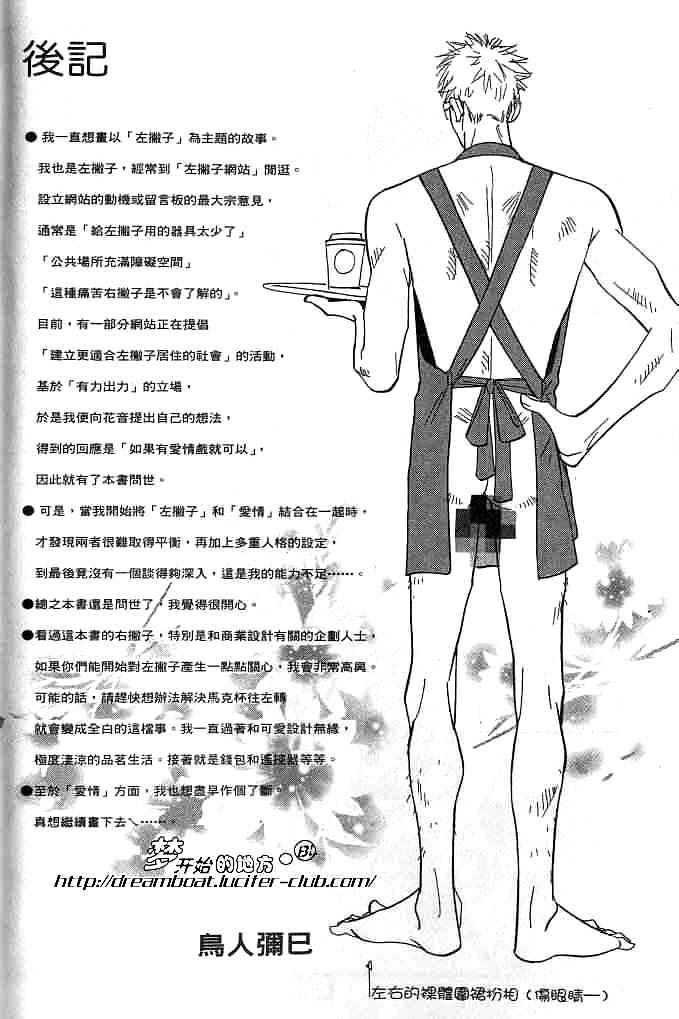 後記
●我一直想畫以「左撇子」為主題的故事。
我也是左撇子，經常到「左撇子網站」閒逛。
設立網站的動機或留言板的最大宗意見，
通常是「給左撇子用的器具太少了」
「公共場所充滿障礙空間」
「這種痛苦右撇子是不會了解的」。
目前，有一部分網站正在提倡
「建立更適合左撇子居住的社會」的活動，
基於「有力出力」的立場，
於是我便向花音提出自己的想法，
得到的回應是「如果有愛情戲就可以」，
因此就有了本書問世。
●可是，當我開始將「左撇子」和「愛情」結合在一起時，
才發現兩者很難取得平衡，再加上多重人格的設定，
到最後竟沒有一個談得夠深入，這是我的能力不足……。
●總之本書還是問世了，我覺得很開心。
●看過這本書的右撇子，特別是和商業設計有關的企劃人士，
如果你們能開始對左撇子產生一點點關心，我會非常高興。
可能的話，請趕快想辦法解決馬克杯往左轉
就會變成全白的這檔事。我一直過著和可愛設計無緣，
極度淒涼的品茗生活。接著就是錢包和遙控器等等。
●至於「愛情」方面，我也想盡早作個了斷。
真想繼續畫下去＼……。
梦开始的地方·B!
http://dreamboat.lucifer-club.com/
鳥人彌巳
左右的裸體圍裙扮相（傷眼睛—）